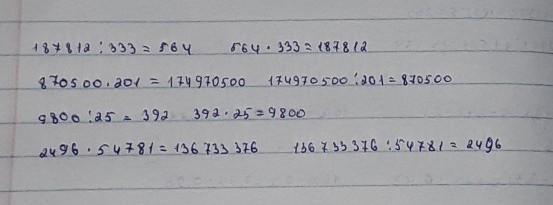 187812 : 333 = 564 564 · 333 = 187812
870500 · 201 = 174970500 174970500 : 201 = 870500
9800 : 25 = 392 392 · 25 = 9800
2496 · 54781 = 136733376 136733376 : 54781 = 2496